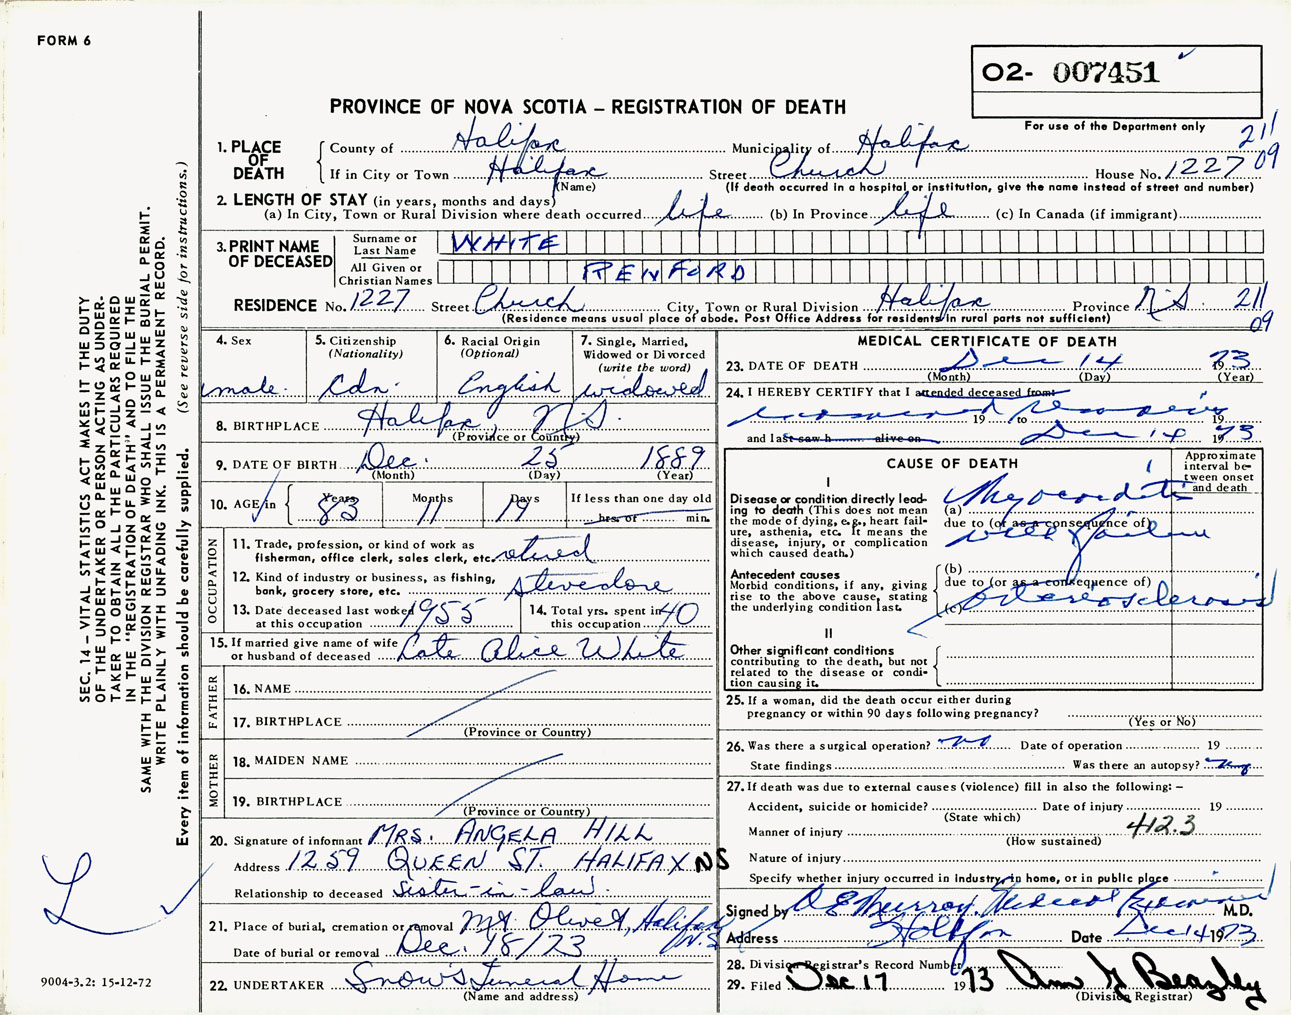 FORM 6
02- 007451
For use of the Department only
PROVINCE OF NOVA SCOTIA – REGISTRATION OF DEATH
211
09
1. PLACE OF DEATH
County of Halifax Municipality of Halifax
If in City or Town Halifax Street Church House No. 1227
(Name) (If death occurred in a hospital or institution, give the name instead of street and number)
2. LENGTH OF STAY (in years, months and days)
(a) In City, Town or Rural Division where death occurred life (b) In Province life (c) In Canada (if immigrant)
3. PRINT NAME OF DECEASED
Surname or Last Name WHITE
All Given or Christian Names RENFORD
RESIDENCE No. 1227 Street Church City, Town or Rural Division Halifax Province N.S. 211
09
(Residence means usual place of abode. Post Office Address for residents in rural parts not sufficient)
4. Sex
male.
5. Citizenship
(Nationality)
Cdn.
6. Racial Origin
(Optional)
English
7. Single, Married,
Widowed or Divorced
(write the word)
widowed
8. BIRTHPLACE Halifax, N.S.
(Province or Country)
9. DATE OF BIRTH Dec. 25 1889
(Month) (Day) (Year)
10. AGE in Years Months Days If less than one day old
83 11 19 hrs. or min.
OCCUPATION
11. Trade, profession, or kind of work as
fisherman, office clerk, sales clerk, etc. retired
12. Kind of industry or business, as fishing,
bank, grocery store, etc. stevedore
13. Date deceased last worked at this occupation 1955
14. Total yrs. spent in this occupation 40
15. If married give name of wife
or husband of deceased Late Alice White
FATHER
16. NAME
17. BIRTHPLACE
(Province or Country)
MOTHER
18. MAIDEN NAME
19. BIRTHPLACE
(Province or Country)
20. Signature of informant MRS. ANGELA HILL
Address 1259 QUEEN ST. HALIFAX NS
Relationship to deceased sister-in-law.
21. Place of burial, cremation or removal Mt. Olivet, Halifax N.S.
Date of burial or removal Dec. 18/73
22. UNDERTAKER Snow's Funeral Home
(Name and address)
MEDICAL CERTIFICATE OF DEATH
23. DATE OF DEATH Dec 14 1973
(Month) (Day) (Year)
24. I HEREBY CERTIFY that I attended deceased from:
examined remains
19 to 19
and last saw h alive on Dec 14 1973
CAUSE OF DEATH
Approximate interval between onset and death
I
Disease or condition directly leading to death (This does not mean the mode of dying, e.g., heart failure, asthenia, etc. It means the disease, injury, or complication which caused death.)
(a) Myocarditis
due to (or as a consequence of)
with failure
Antecedent causes
Morbid conditions, if any, giving rise to the above cause, stating the underlying condition last.
(b)
due to (or as a consequence of)
(c) arteriosclerosis
II
Other significant conditions
contributing to the death, but not related to the disease or condition causing it.
25. If a woman, did the death occur either during
pregnancy or within 90 days following pregnancy?
(Yes or No)
26. Was there a surgical operation? no Date of operation 19
State findings Was there an autopsy?
27. If death was due to external causes (violence) fill in also the following: –
Accident, suicide or homicide? Date of injury 19
(State which)
Manner of injury 412.3
(How sustained)
Nature of injury
Specify whether injury occurred in industry, in home, or in public place
Signed by D E Murray. Medical Examiner M.D.
Address Halifax Date Dec 14 1973
28. Division Registrar's Record Number
29. Filed Dec 17 1973 Ann G Beazley
(Division Registrar)
SEC. 14 – VITAL STATISTICS ACT MAKES IT THE DUTY
OF THE UNDERTAKER OR PERSON ACTING AS UNDERTAKER TO OBTAIN ALL THE PARTICULARS REQUIRED
IN THE "REGISTRATION OF DEATH" AND TO FILE THE
SAME WITH THE DIVISION REGISTRAR WHO SHALL ISSUE THE BURIAL PERMIT.
WRITE PLAINLY WITH UNFADING INK. THIS IS A PERMANENT RECORD.
Every item of information should be carefully supplied. (See reverse side for instructions.)
9004-3.2: 15-12-72